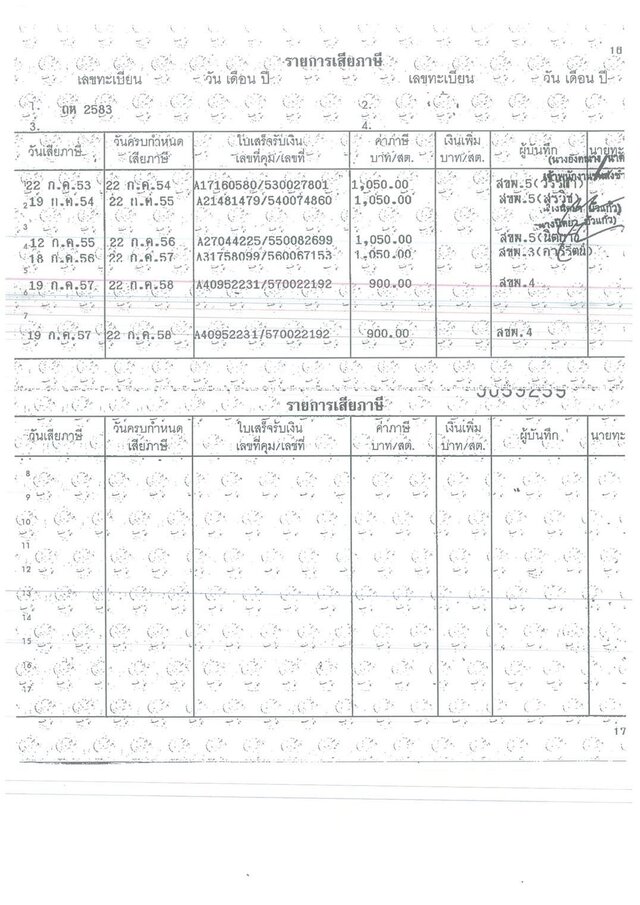 16
รายการเสียภาษี
เลขทะเบียน วัน เดือน ปี เลขทะเบียน วัน เดือน ปี
1. ถห 2583 2.
3. 4.
วันเสียภาษี วันครบกำหนดเสียภาษี ใบเสร็จรับเงิน เลขที่คุม/เลขที่ ค่าภาษี บาท/สต. เงินเพิ่ม บาท/สต. ผู้บันทึก นายทะ
22 ก.ค.53 22 ก.ค.54 A17160580/530027801 1,050.00 สขพ.5
2 19 ก.ค.54 22 ก.ค.55 A21481479/540074860 1,050.00 สขพ.5
4 12 ก.ค.55 22 ก.ค.56 A27044225/550082699 1,050.00 สขพ.5
18 ก.ค.56 22 ก.ค.57 A31758099/560067153 1,050.00 สขพ.3
5
19 ก.ค.57 22 ก.ค.58 A40952231/570022192 900.00 สขพ.4
6
7
19 ก.ค.57 22 ก.ค.58 A40952231/570022192 900.00 สขพ.4
รายการเสียภาษี
วันเสียภาษี วันครบกำหนดเสียภาษี ใบเสร็จรับเงิน เลขที่คุม/เลขที่ ค่าภาษี บาท/สต. เงินเพิ่ม บาท/สต. ผู้บันทึก นายทะ
8
9
10
11
12
13
14
15
16
17
17